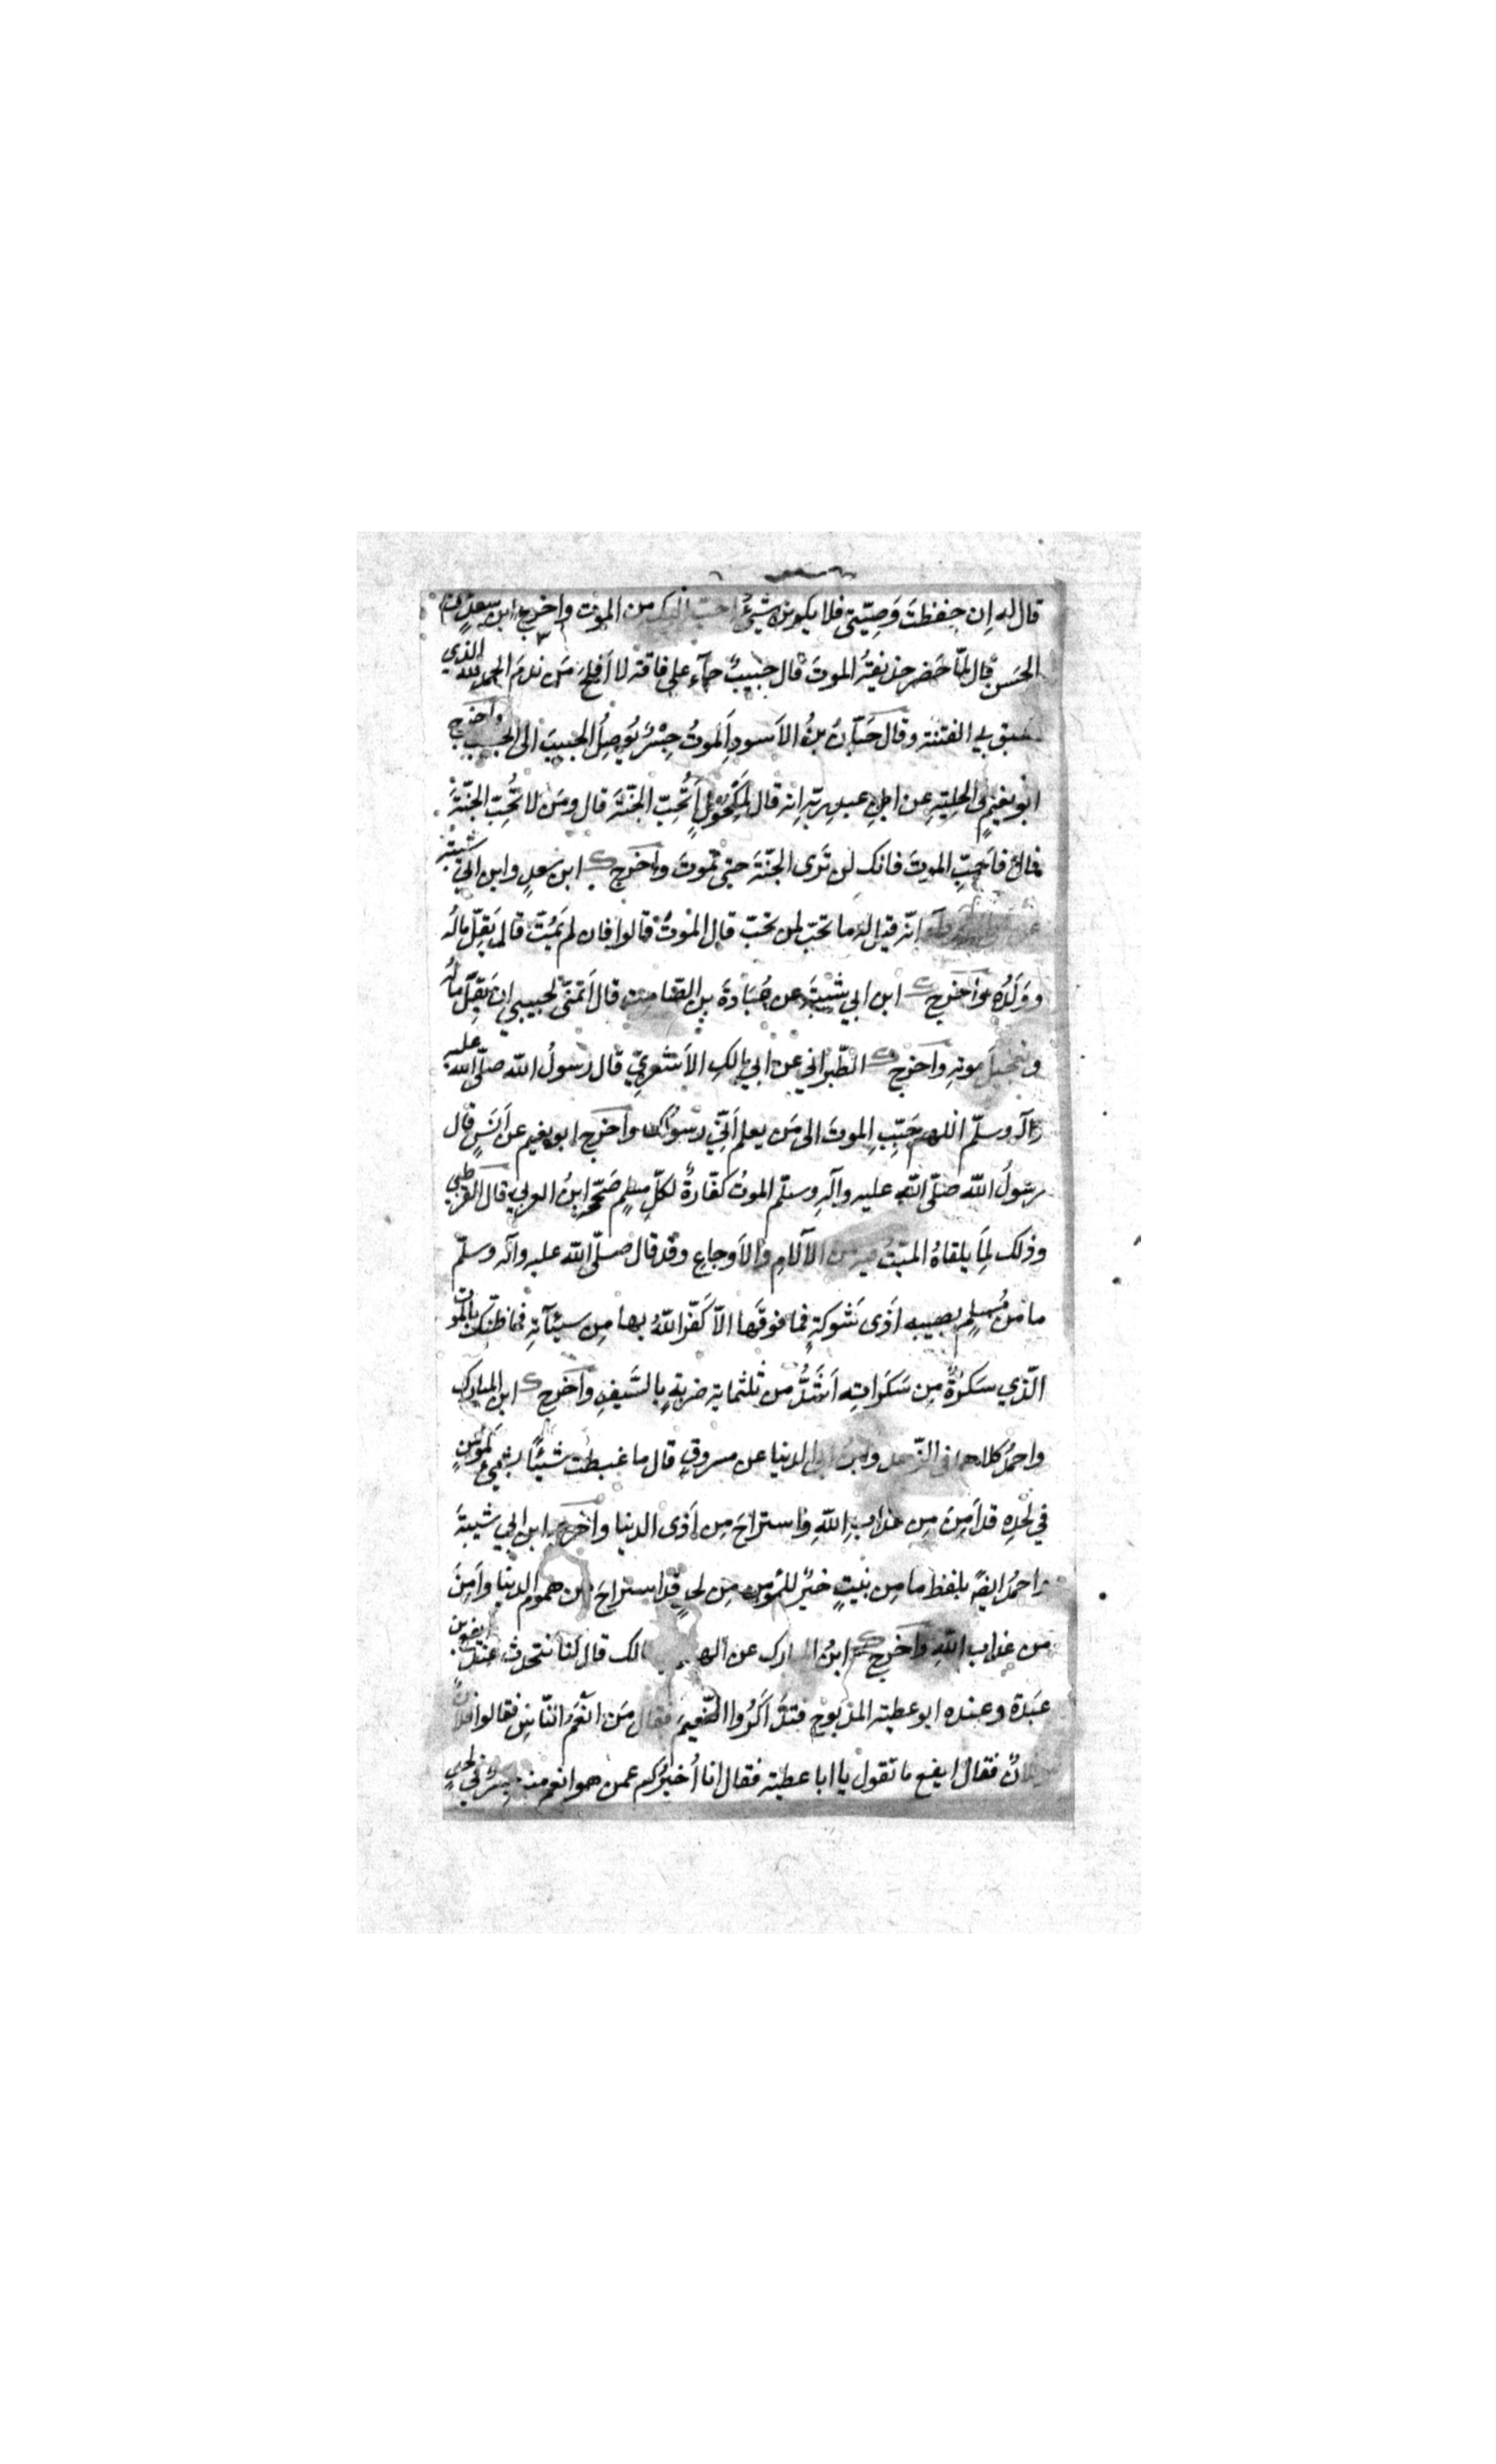 قال له اِن حفظتَ وَصِيّتي فلا يكونن شيئٌ احبّ اليك من الموت واخرج ابن سعدٍ عن
الحَسن قال لمّا حَضر حذيفةَ الموتُ قال حبيبٌ جآء على فاقة لا اَفلحَ مَن ندمَ الحمد لله الذي
سبق بي الفتنة وقال حَبّانُ بنُ الاَسودِ اَلموتُ جِسْرٌ يُوصِلُ الحبيبَ الى الحبيب واخرج
ابو نعيمٍ في الحِليةِ عن ابن عبدِ ربّه اِنه قال لِمَكحُولٍ اَتُحِبّ الجنّةَ قال ومَن لا تُحِبّ الجنّةَ
قال فاَحِبِّ الموتَ فانك لن تَرى الجنّةَ حتى تموتَ واَخرج ابن سعدٍ وابن ابي شيبة
عن ابي الدردآء انّه قيل له ما تحبّ لمن تحبّ قال الموتُ قالوا فان لم يَمُتْ قال يَقِلّ مالُه
ووَلَدُه واَخرج ابن ابي شَيْبَةَ عن عُبَادةَ بنِ الصّامت قال اَتمنّى لحبيبي ان يَقِلَّ مالُه
ويعجّلَ موته واَخرج الطّبراني عن ابي مالكٍ الاَشعريّ قال رسولُ الله صلّى الله عليه
وآله وسلّم اللهم حَبِّبِ الموتَ الى مَن يعلم اَنّي رسولُك واَخرج ابو نعيم عن اَنَسٍ قال
رسُولُ الله صلّى الله عليه وآلهِ وسلّم الموتُ كفّارةٌ لكلّ مسلمٍ صَحّحه ابنُ العربي قال القرطبي
وذلك لِمَا يلقاهُ الميّتُ فيه من الآلامِ والاَوجاعِ وقد قال صلّى الله عليه وآله وسلّم
ما من مُسلمٍ يصيبه اَذى شَوكةٍ فما فوقَها الاّ كَفّرَ اللهُ بها مِن سيئآتهِ فما ظنّك بالموت
الّذي سَكرَةٌ مِن سَكَراتِه اَشَدُّ من ثلثماية ضربةٍ بالسَّيفِ واَخرج ابن المبارك
واحمدُ كلاهما في الزّهد وابن ابي الدنيا عن مسروقٍ قال ما غبطتُ شيئًا بشيئ كمؤمنٍ
في لَحْدِه قد اَمِنَ مِن عذابِ اللهِ واستراحَ مِن اَذى الدنيا واَخرج ابن ابي شيبةَ
واحمدُ ايضًا بلفظ ما مِن بَيتٍ خيرٌ للمُؤمِن مِن لحدٍ قد استراحَ مِن همومِ الدنيا واَمِنَ
من عذاب اللهِ واَخرج ابنُ المبارك عن الهيثم بن مالك قال كنا نتحدث عند ايفع بن
عَبَدة وعنده ابو عطية المذبوح فتذَاكَرُوا النّعِيمَ فقال مَن انعَمُ النّاسِ فقالوا فلانٌ
وفلانٌ فقال ايفع ما تقول يا ابا عطية فقال انا اُخبرُكم عمن هو انعم منه جسَدٌ في لحدٍ